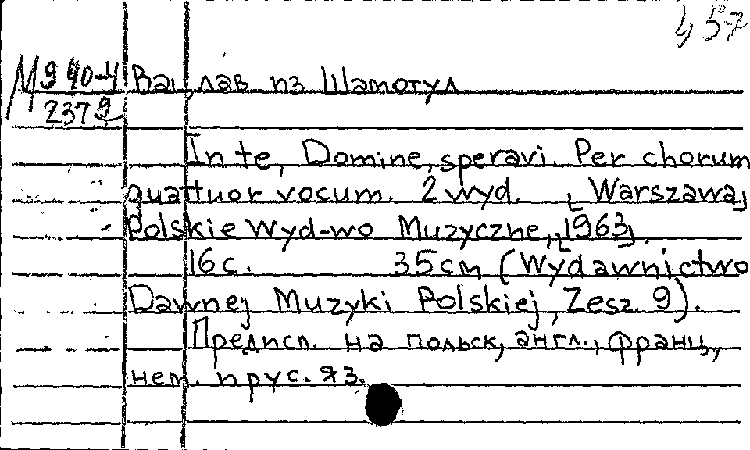 457
М940-4 Вацлав из Шамотул
2379
In te, Domine, speravi. Per chorum
quattuor vocum. 2 wyd. [Warszawa]
Polskie Wyd-wo Muzyczne, [1963].
16 с. 35 cm (Wydawnictwo
Dawnej Muzyki Polskiej, Zesz. 9).
Предисл. на польск., англ., франц.,
нем. и рус. яз.